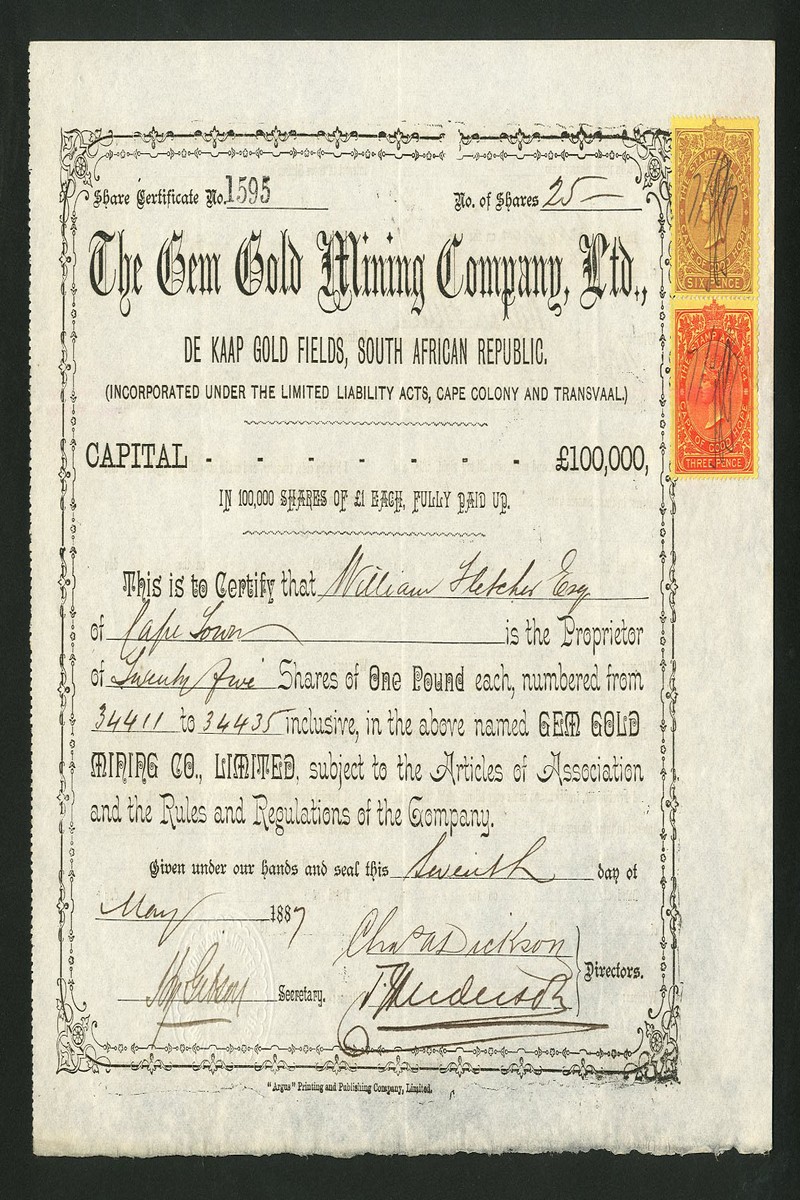 Share Certificate No. 1595
No. of Shares 25 —
The Gem Gold Mining Company, Ltd.,
DE KAAP GOLD FIELDS, SOUTH AFRICAN REPUBLIC.
(INCORPORATED UNDER THE LIMITED LIABILITY ACTS, CAPE COLONY AND TRANSVAAL.)
CAPITAL - - - - - - - £100,000,
IN 100,000 SHARES OF £1 EACH, FULLY PAID UP.
This is to Certify that William Fletcher Esq
of Cape Town is the Proprietor
of Twenty five Shares of One Pound each, numbered from
34411 to 34435 inclusive, in the above named GEM GOLD
MINING CO., LIMITED, subject to the Articles of Association
and the Rules and Regulations of the Company.
Given under our hands and seal this Seventh day of
May 1887
Chas Dickson
Secretary.
Henderson
Directors.
"Argus" Printing and Publishing Company, Limited.
STAMP ACT 1864
CAPE OF GOOD HOPE
SIX PENCE
STAMP ACT 1864
CAPE OF GOOD HOPE
THREE PENCE